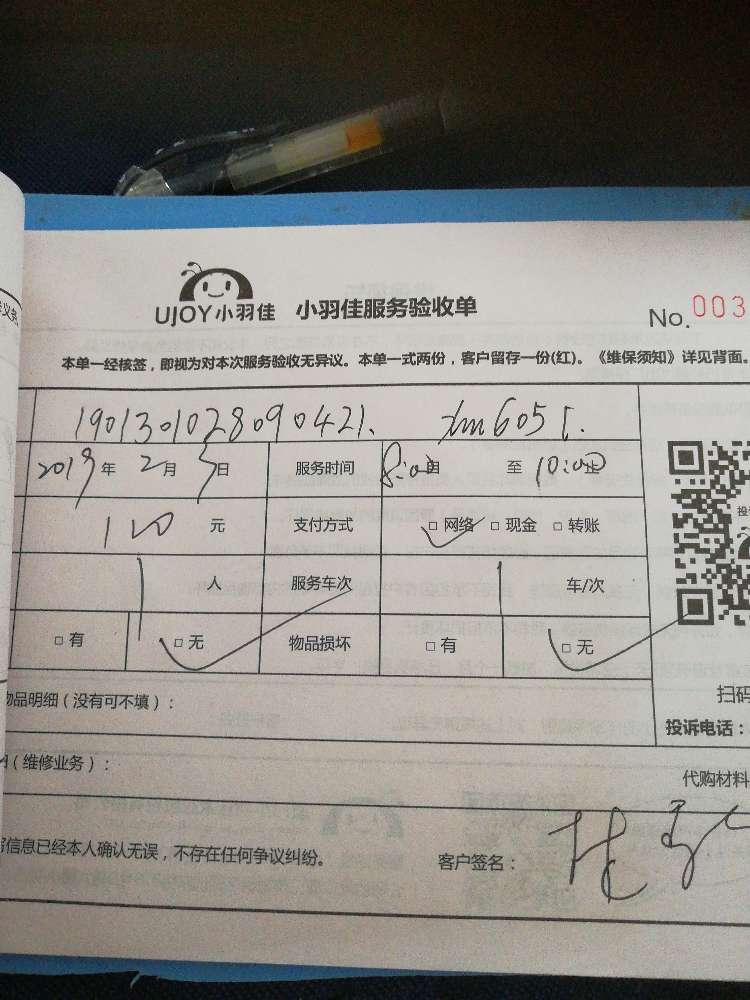 UJOY小羽佳 小羽佳服务验收单
No. 003
本单一经核签，即视为对本次服务验收无异议。本单一式两份，客户留存一份(红)。《维保须知》详见背面。
1901301028090421. xm6051.
2019年 2月 3日 服务时间 8:00 至 10:00
110 元 支付方式 □ 网络 □ 现金 □ 转账
1 人 服务车次 1 车/次
□ 有 □ 无 物品损坏 □ 有 □ 无
扫码
物品明细（没有可不填）：
投诉电话：
（维修业务）：
代购材料
信息已经本人确认无误，不存在任何争议纠纷。 客户签名：